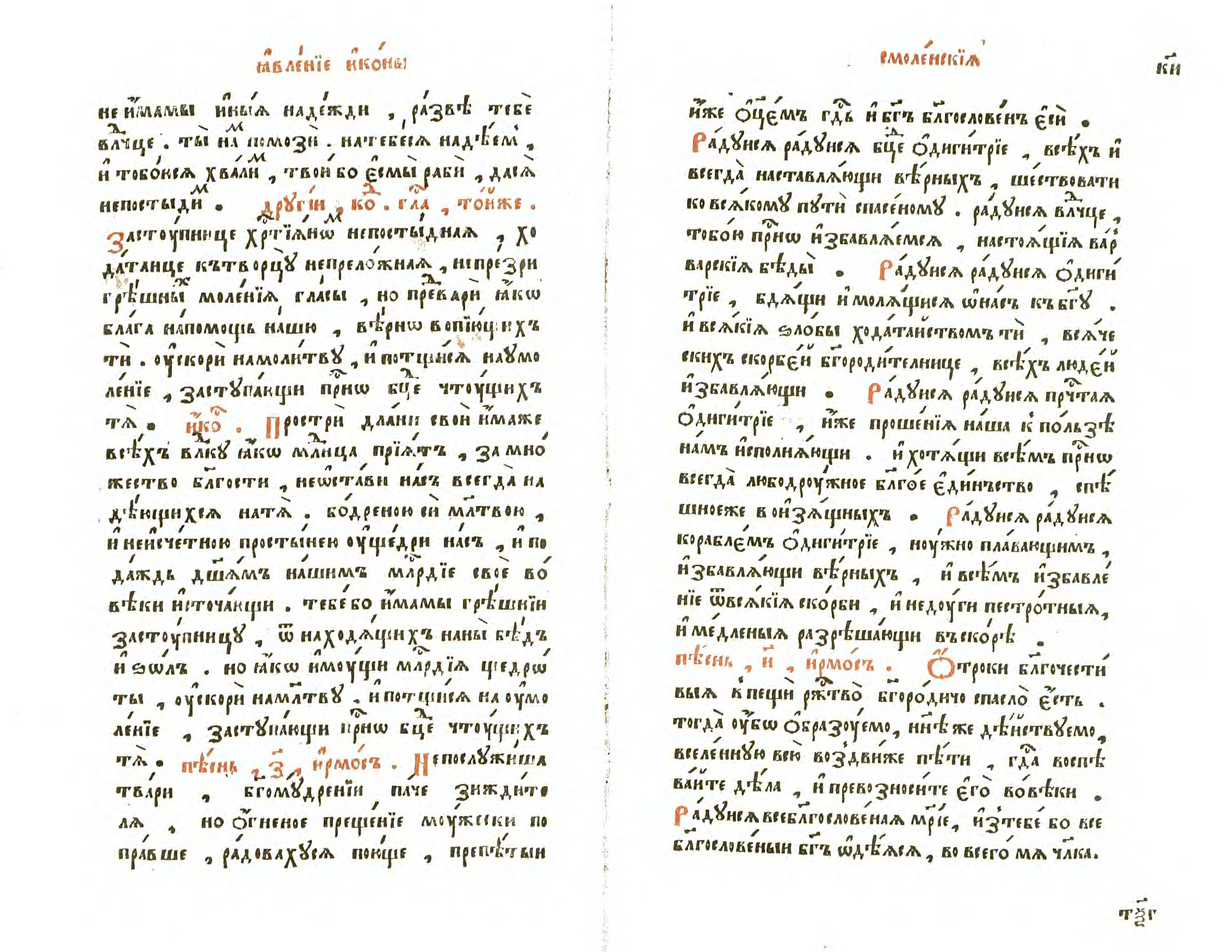 ꙗ҆вле́нїе и҆ко́ны
не и҆́мамы и҆ны́ѧ наде́жди , ра́звѣ тебѐ
влⷣчце . ты̀ наⷨ помозѝ . натебе́сѧ надѣ́емⸯ ,
и҆ тобо́исѧ хва́лиⷨ , твои́ бо є҆смы̀ рабѝ , дасѧ̀
непостыди́ⷨ . дрꙋгі́и , коⷣ . гла́ , то́йже .
Засто́упнице хрⷭ҇тїѧ́нѡⷨ непосты́днаѧ , хо
да́таице кътворцꙋ̀ непрело́жнаѧ , непре́зри
грѣ́шныⷯ моле́нїѧ гла́сы , но предварѝ ꙗ҆́кѡ
блага́ѧ напо́мощь на́шꙋ , вѣ́рнѡ вопїю́щихъ
тѝ . оу҆скорѝ намоли́твꙋ , и҆ потщи́сѧ наꙋмо
ле́нїе , застꙋпа́ющи при́снѡ бцⷣе чтоу́щихъ
тѧ̀ . и҆́коⷭ҇ . Прострѝ дла́ни своѝ и҆́маже
всѣ́хъ влⷣкꙋ ꙗ҆́кѡ млⷣнца прїѧ́тъ , за мно́
жество бл҃гости , неѡ҆ста́ви на́съ всегда̀ на
дѣ́ющихсѧ натѧ̀ . бо́дреною сѝ мл҃твою ,
и҆ неисче́тною просты́нею оу҆ще́дри на́съ , и҆ по
да́ждь дш҃а́мъ на́шимъ млⷭ҇рдїе своѐ во́
вѣки и҆сточа́ющи . тебе́ бо и҆́мамы грѣ́шнїи
засто́упницꙋ , ѿ находѧ́щихъ наны̀ бѣ́дъ
и҆ ѕѡ́лъ . но ꙗ҆́кѡ и҆моу́щи млⷭ҇рдїѧ щедрѡ́
ты , оу҆скорѝ намл҃твꙋ . и҆ потщи́сѧ на оу҆мо
ле́нїе , застꙋпа́ющи при́снѡ бцⷣе чтоу́щихъ
тѧ̀ . пѣ́снь , з҃ , и҆рмо́съ . Непослꙋжи́ша
тва́ри , бг҃омꙋ́дренїи па́че зижди́те
лѧ , но ѻ҆́гненое преще́нїе моу́жески по
пра́вше , ра́довахꙋсѧ пою́ще , препѣ́тыи
смоле́нскїѧ
к҃и
и҆́же ѻ҆ц҃е́мъ гдⷭ҇ь и҆ бг҃ъ бл҃гослове́нъ є҆сѝ .
Ра́дꙋисѧ ра́дꙋисѧ бцⷣе ѻ҆диги́трїе , всѣ́хъ и҆
всегда̀ наставлѧ́ющи вѣ́рныхъ , ше́ствовати
ко всѧ́комꙋ пꙋтѝ спасе́номꙋ . ра́дꙋисѧ влⷣчце ,
тобо́ю при́снѡ и҆збавлѧ́емсѧ , настоѧ́щїѧ ва́р
варскїѧ бѣды̀ . Ра́дꙋисѧ ра́дꙋисѧ ѻ҆диги́
трїе , бдѧ́щи и҆ молѧ́щисѧ ѡ҆на́съ къ бг҃ꙋ .
и҆ всѧ́кїѧ ѕло́бы хода́таиствомъ тѝ , всѧ́че
скихъ скорбе́й бг҃ороди́телнице , всѣ́хъ люде́й
и҆збавлѧ́ющи . Ра́дꙋисѧ ра́дꙋисѧ прⷱ҇таѧ
ѻ҆диги́трїе , и҆́же проше́нїѧ на́ша к̾ по́льзѣ
на́мъ и҆сполнѧ́ющи . и҆ хотѧ́щи всѣ́мъ при́снѡ
всегда̀ любодроу́жное бл҃го́е є҆ди́нъство , спѣ́
шноеже во и҆зѧ́щныхъ . Ра́дꙋисѧ ра́дꙋисѧ
корабле́мъ ѻ҆диги́трїе , ноу́жно пла́вающимъ ,
и҆збавлѧ́ющи вѣ́рныхъ , и҆ всѣ́мъ и҆збавле́
нїе ѿвсѧ́кїѧ ско́рби , и҆ недоу́ги пестро́тныѧ,
и҆ ме́дленыѧ разрѣша́ющи въско́рѣ .
пѣ́снь , и҃ , и҆рмо́съ . Ѻ҆́троки бл҃гочести́
выѧ в̾пещѝ ржⷭ҇тво̀ бг҃оро́дичо спасло̀ є҆́сть .
тогда̀ оу҆́бѡ ѻ҆бразоу́емо, нн҃ѣ же дѣ́йствꙋемо,
вселе́ннꙋю всю̀ воздви́же пѣ́ти , гдⷭ҇а воспѣ
ва́йте дѣла̀ , и҆ превозноси́те є҆го̀ во́вѣки .
Ра́дꙋисѧ всебл҃гослове́наѧ мр҃і́е, и҆стебе́ бо все
бл҃гослове́ныи бг҃ъ ѡ҆дѣ́ѧсѧ, во всего̀ мѧ чл҃ка.
тⷥг